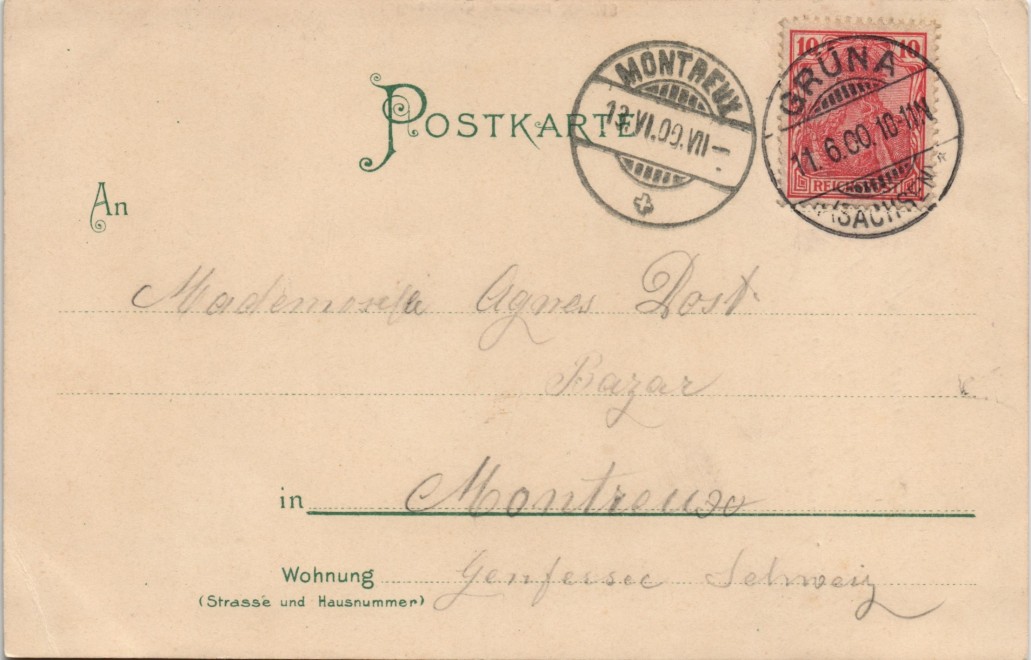 POSTKARTE
MONTREUX
13.VI.00.VII–
GRÜNA
11.6.00.10-11V.
(SACHSEN)
10 10
REICHSPOST
An
Mademoiselle Agnes Dost
Bazar
in Montreux
Wohnung Genfersee Schweiz
(Strasse und Hausnummer)